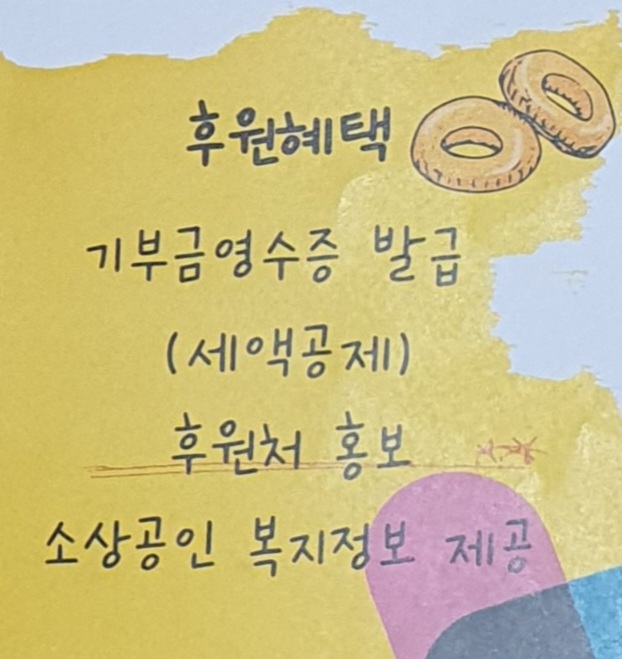 후원혜택
기부금영수증 발급
(세액공제)
후원처 홍보
소상공인 복지정보 제공